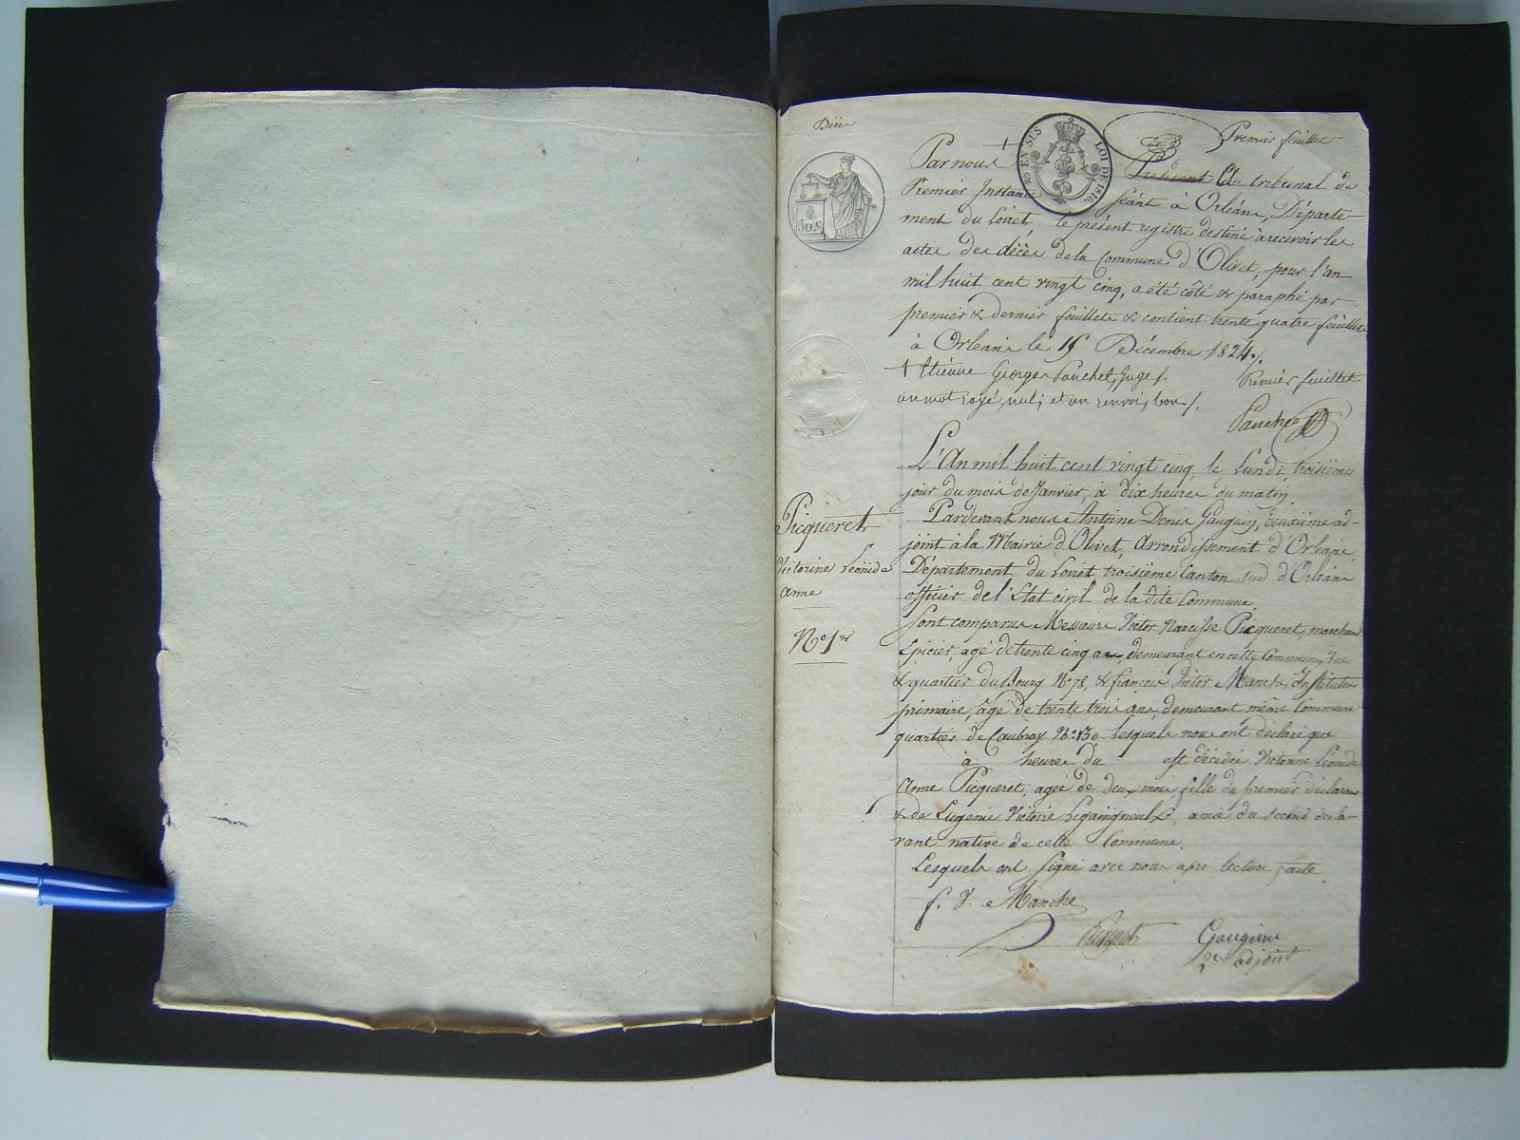 Décès
Premier feuillet
EN SUS
LOI DE 1816
50 c.
Par nous †
Président du tribunal de
Première Instance séant à Orléans, Départe-
ment du Loiret, le présent registre destiné à recevoir les
actes de décès de la Commune d'Olivet, pour l'an
mil huit cent vingt cinq, a été côté & paraphé par
premier & dernier feuillets & contient trente quatre feuillets
à Orléans le 15 Décembre 1824.
† Etienne Georges Pauchet, Juge
Premier feuillet
un mot rayé, nul; et un renvoi, bon.
L'An mil huit cent vingt cinq, le Lundi, troisième
jour du mois de Janvier, à dix heures du matin.
Picqueret
Victorine Léonide
Anne
N° 1er
Pardevant nous Antoine Denis Gaugien, deuxième ad-
joint à la Mairie d'Olivet, Arrondissement d'Orléans
Département du Loiret, troisième Canton sud d'Orléans
officier de l'État civil de la dite Commune.
Sont comparus Messieurs Victor Narcisse Picqueret, marchand
Epicier, agé de trente cinq ans, demeurant en cette Commune, rue
& quartier du Bourg N° 78, & françois Victor Manche, Instituteur
primaire, âgé de trente trois ans, demeurant même Commune
quartier de Caubray N° 130 lesquels nous ont déclaré que
à heures du est décédée Victorine Léonide
Anne Picqueret, agée de deux mois fille du premier déclarant
& de Eugénie Victoire amie du second décla-
rant native de cette Commune.
Lesquels ont signé avec nous après lecture faite
f. V. Manche
Gaugien
2e adjoint